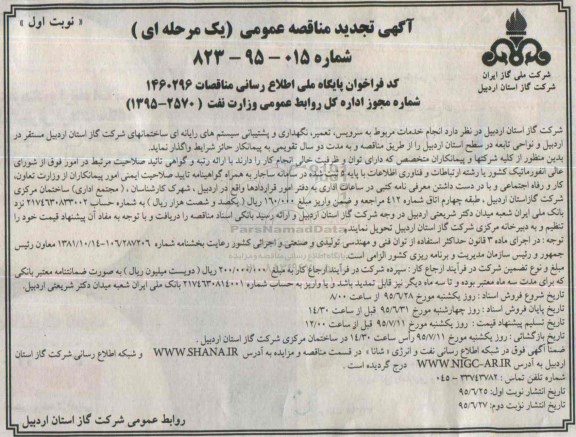 « نوبت اول »
آگهی تجدید مناقصه عمومی (یک مرحله ای )
شماره ۰۱۵ - ۹۵ - ۸۲۳
کد فراخوان پایگاه ملی اطلاع رسانی مناقصات ۱۴۶۰۲۹۶
شماره مجوز اداره کل روابط عمومی وزارت نفت (۲۵۷۰-۱۳۹۵)
شرکت ملی گاز ایران
شرکت گاز استان اردبیل
شرکت گاز استان اردبیل در نظر دارد انجام خدمات مربوط به سرویس، تعمیر، نگهداری و پشتیبانی سیستم های رایانه ای ساختمانهای شرکت گاز استان اردبیل مستقر در
اردبیل و نواحی تابعه در سطح استان اردبیل را از طریق مناقصه و به مدت دو سال تقویمی به پیمانکار حائز شرایط واگذار نماید.
بدین منظور از کلیه شرکتها و پیمانکاران متخصص که دارای توان و ظرفیت خالی انجام کار را دارند با ارائه رتبه و گواهی تائید صلاحیت مرتبط در امور فوق از شورای
عالی انفورماتیک کشور با رشته ارتباطات و فناوری اطلاعات با پایه در سامانه ساجار به همراه گواهینامه تایید صلاحیت ایمنی امور پیمانکاران از وزارت تعاون،
کار و رفاه اجتماعی و با در دست داشتن معرفه نامه کتبی در ساعات اداری به دفتر امور قراردادها واقع در اردبیل ، شهرک کارشناسان ، (مجتمع اداری) ساختمان مرکزی
شرکت گازاستان اردبیل ، طبقه چهارم اتاق شماره ۴۱۲ مراجعه و ضمن واریز مبلغ ۱۶۰/۰۰۰ ریال ( یکصد و شصت هزار ریال ) به شماره حساب ۲۱۷۴۶۳۰۸۳۳۰۰۲ نزد
بانک ملی ایران شعبه میدان دکتر شریعتی اردبیل در وجه شرکت گاز استان اردبیل و ارائه رسید بانکی اسناد مناقصه را دریافت و با توجه به مفاد آن پیشنهاد قیمت خود را
تنظیم و به دبیرخانه مرکزی شرکت گاز استان اردبیل تحویل نمایند.
توجه : در اجرای ماده ۳ قانون حداکثر استفاده از توان فنی و مهندسی تولیدی و صنعتی و اجرائی کشور رعایت بخشنامه شماره ۱۰۶/۲۸۷۲۰۶-۱۳۸۱/۱۰/۱۴ معاون رئیس
جمهور و رئیس سازمان مدیریت و برنامه ریزی کشور الزامی است.
مبلغ و نوع تضمین شرکت در فرآیند ارجاع کار : سپرده شرکت در فرآیند ارجاع کار به مبلغ ۲۰۰/۰۰۰/۰۰۰ ریال ( دویست میلیون ریال ) به صورت ضمانتنامه معتبر بانکی
که برای مدت سه ماه معتبر بوده و تا سه ماه دیگر نیز قابل تمدید باشد و یا واریز به حساب شماره ۲۱۷۴۶۳۰۸۱۴۰۰۱ بانک ملی ایران شعبه میدان دکتر شریعتی اردبیل.
تاریخ شروع فروش اسناد : روز یکشنبه مورخ ۹۵/۶/۲۸ از ساعت ۸/۰۰
تاریخ پایان فروش اسناد : روز چهارشنبه مورخ ۹۵/۶/۳۱ قبل از ساعت ۱۴/۳۰
تاریخ تسلیم پیشنهاد قیمت : روز یکشنبه مورخ ۹۵/۷/۱۱ قبل از ساعت ۱۲/۰۰
تاریخ بازگشائی : روز یکشنبه مورخ ۹۵/۷/۱۱ رأس ساعت ۱۴/۳۰ در ساختمان مرکزی شرکت گاز استان اردبیل.
ضمناً آگهی فوق در شبکه اطلاع رسانی نفت و انرژی « شانا » در قسمت مناقصه و مزایده به آدرس WWW.SHANA.IR و شبکه اطلاع رسانی شرکت گاز استان
اردبیل به آدرس WWW.NIGC-AR.IR درج گردیده است .
شماره تلفن تماس : ۳۳۷۴۳۷۸۲ - ۰۴۵
تاریخ انتشار نوبت اول: ۹۵/۶/۲۵
تاریخ انتشار نوبت دوم: ۹۵/۶/۲۷
روابط عمومی شرکت گاز استان اردبیل
ParsNamadData